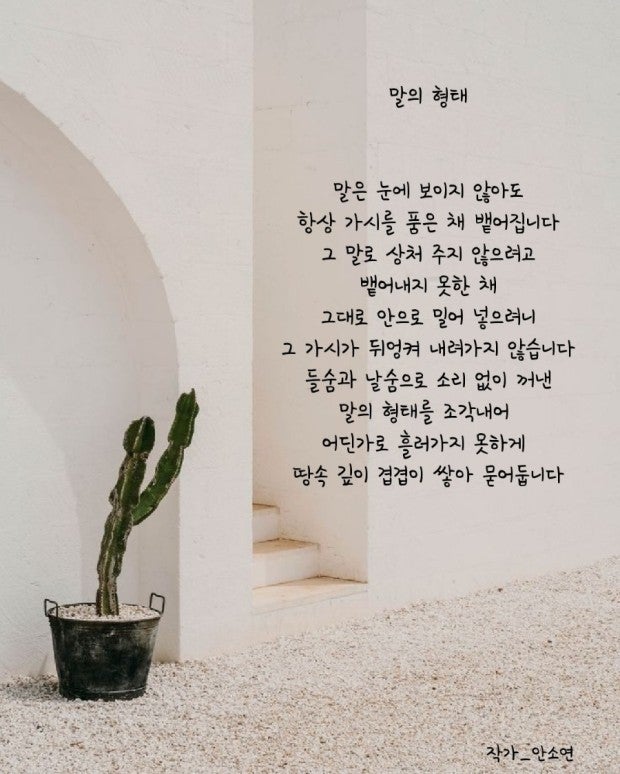 말의 형태
말은 눈에 보이지 않아도
항상 가시를 품은 채 뱉어집니다
그 말로 상처 주지 않으려고
뱉어내지 못한 채
그대로 안으로 밀어 넣으려니
그 가시가 뒤엉켜 내려가지 않습니다
들숨과 날숨으로 소리 없이 꺼낸
말의 형태를 조각내어
어딘가로 흘러가지 못하게
땅속 깊이 겹겹이 쌓아 묻어둡니다
작가_안소연